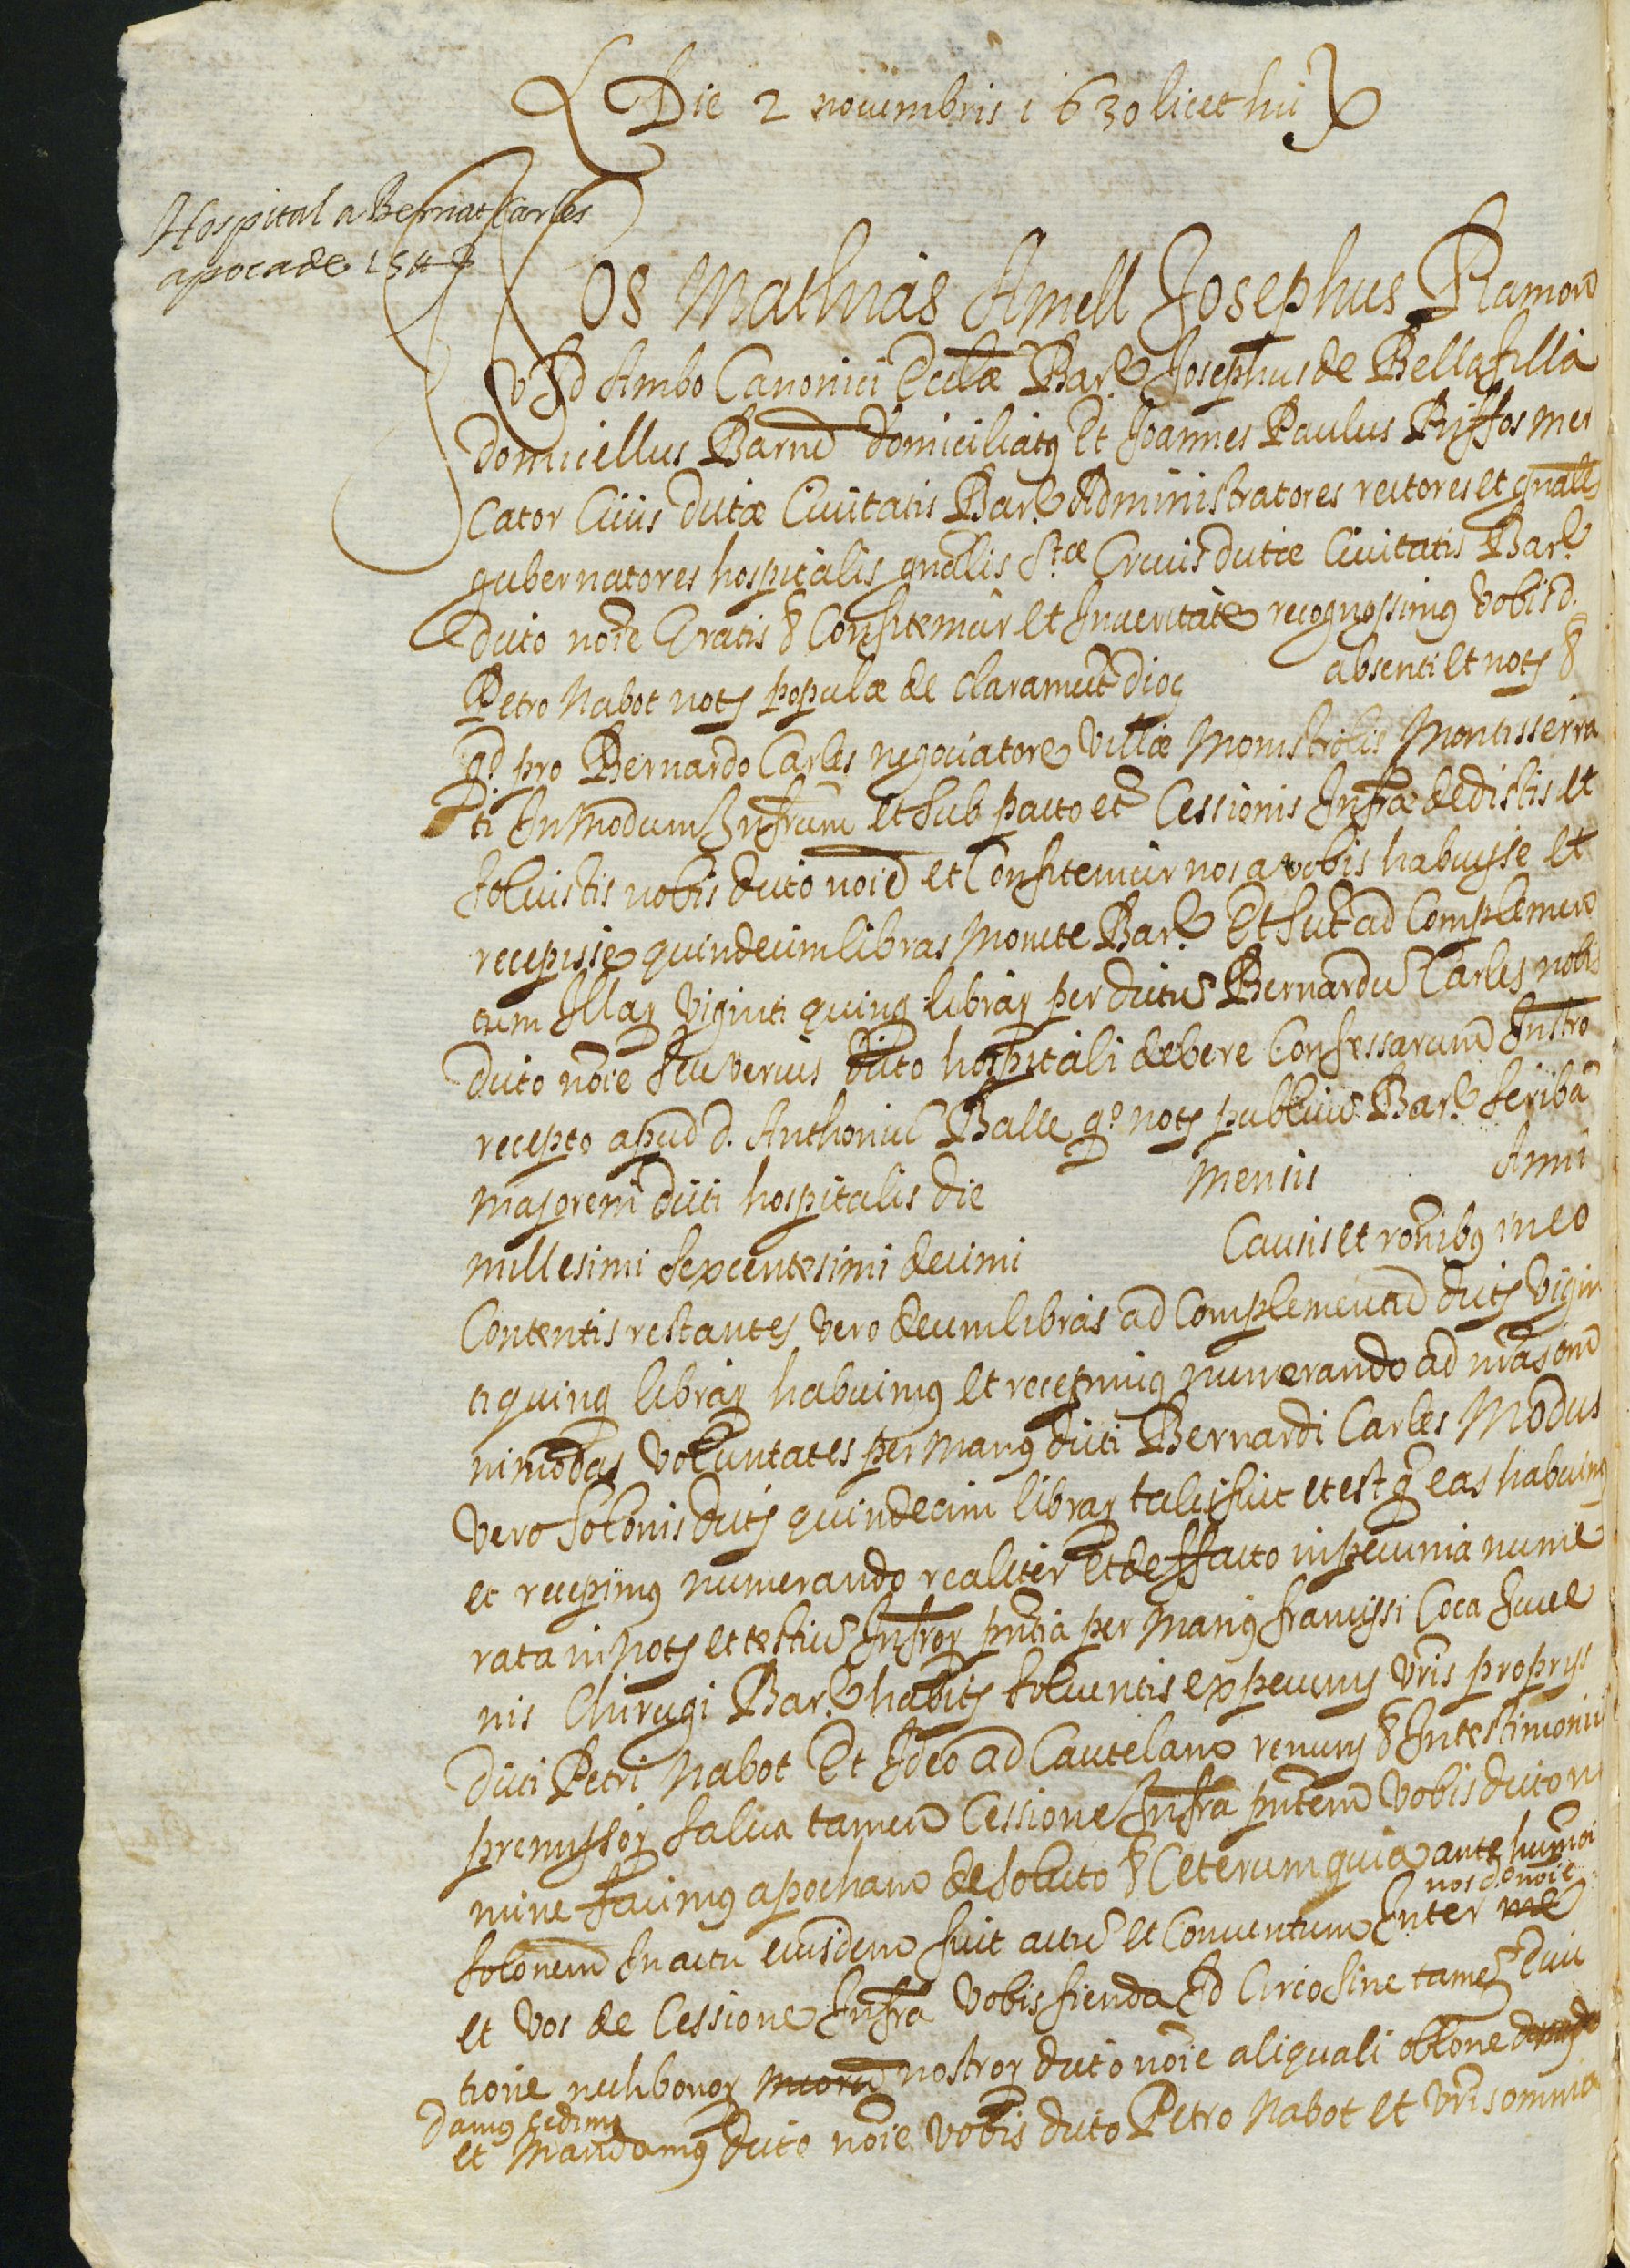 Die 2 nouembris 1630 licet hic
Hospital a Bernat Carles
apoca de 15 ll
Nos Mathias Amell Josephus Ramon
V J D Ambo Canonici Ecclæ Barᵉ Josephus de Bellafilla
domicellus Barne domiciliatꝰ Et Joannes Paulus Riffos mer
cator Ciuis dictæ Ciuitatis Barᵉ Administratores rectores et gnales
gubernatores hospitalis gnalis Stæ Crucis dictæ Ciuitatis Barᵉ
dicto noīe Gratis & Confitemur et In veritate recognossimꝰ vobis d.
Petro Nabot notʒ populæ de claramunt dioc absenti et notʒ &
qd pro Bernardo Carles negociatore Villæ Monistrolis Montisserra
ti In modum Infrum et sub pacto et Cessionis Infræ dedistis et
soluistis nobis dicto noīe et Confitemur nos a vobis habuysse et
recepisse quindecim libras monete Barᵉ Et sūt ad Complemen
tum Illaꝝ viginti quinq libraꝝ per dictū Bernardū Carles nobis
dicto noīe seu verius dicto hospitali debere Confessarum Instro
recepto apud d. Anthoniū Balle qº notʒ publicū Barᵉ scribā
majorem dicti hospitalis die mensis Anni
millesimi sexcentesimi decimi Causis et ronibꝰ in eo
Contentis restantes vero decem libras ad Complementū dictʒ vigin
ti quinq libraꝝ habuimꝰ et recepimꝰ numerando ad nras om
nimodas voluntates per manꝰ dicti Bernardi Carles Modus
vero solonis dictʒ quindecim libraꝝ talis fuit et est q eas habuimꝰ
et recepimꝰ numerando realiter et de ffacto in pecunia nume
rata in notʒ et testiū Infroꝝ pntia per manꝰ francissi Coca Juue
nis Chirugi Barᵉ habitʒ soluentis ex pecunys vris proprys
dicti Petri Nabot Et Ideo ad Cautelam renuns & In testimoniū
premyssoꝝ salua tamen Cessione Infra pntem vobis dicto no
mine facimꝰ apocham de soluto & Ceterum quia ante humoi
solonem In actu eiusdem fuit actū et Conuentum Inter me nos do noīe
et vos de Cessione Infra vobis fienda Id Circo sine tamē Euic
tione nech bonoꝝ meorū nostroꝝ dicto noīe aliquali oblone
Damꝰ cedimꝰ
et Mandamꝰ dicto noīe vobis dicto Petro Nabot et vris omnia